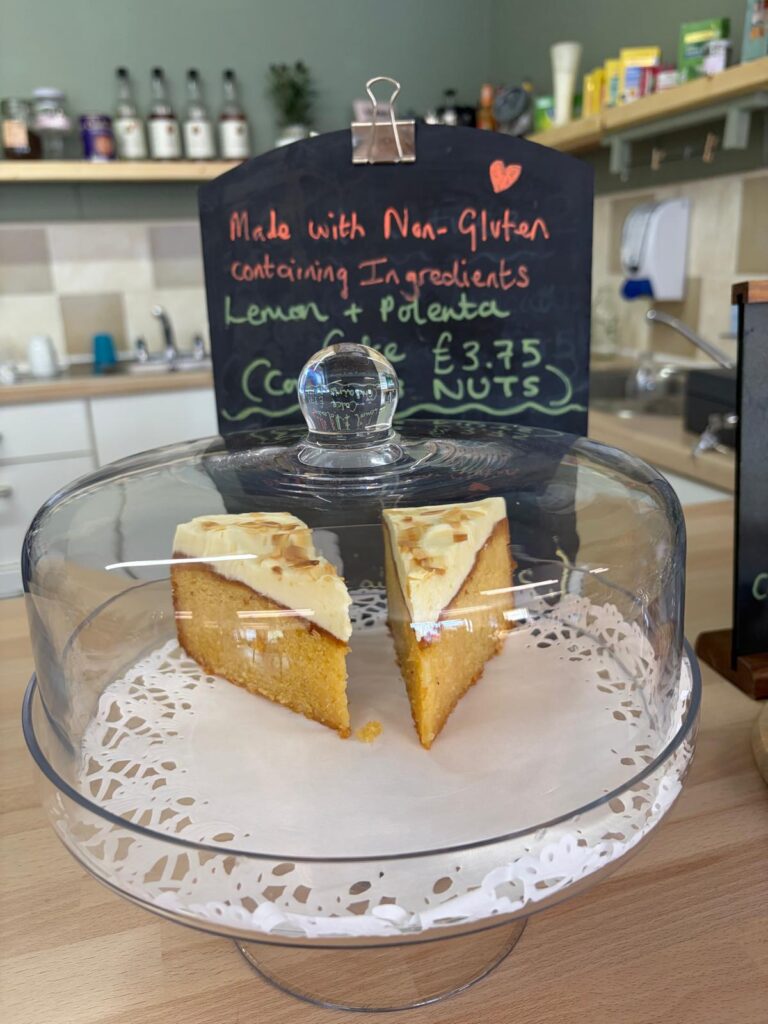 Made with Non-Gluten
containing Ingredients
Lemon + Polenta
Cake £3.75
NUTS)